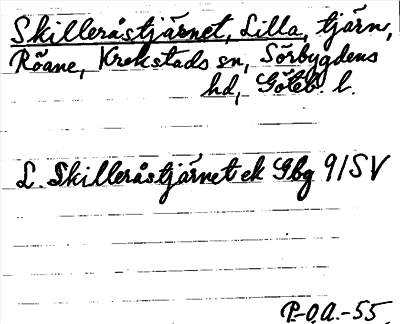 Skilleråstjärnet, Lilla, tjärn,
Röane, Krokstads sn, Sörbygdens
hd, Göteb. l.
L. Skilleråstjärnet ek Gbg 9/SV
P.-O.A.-55.